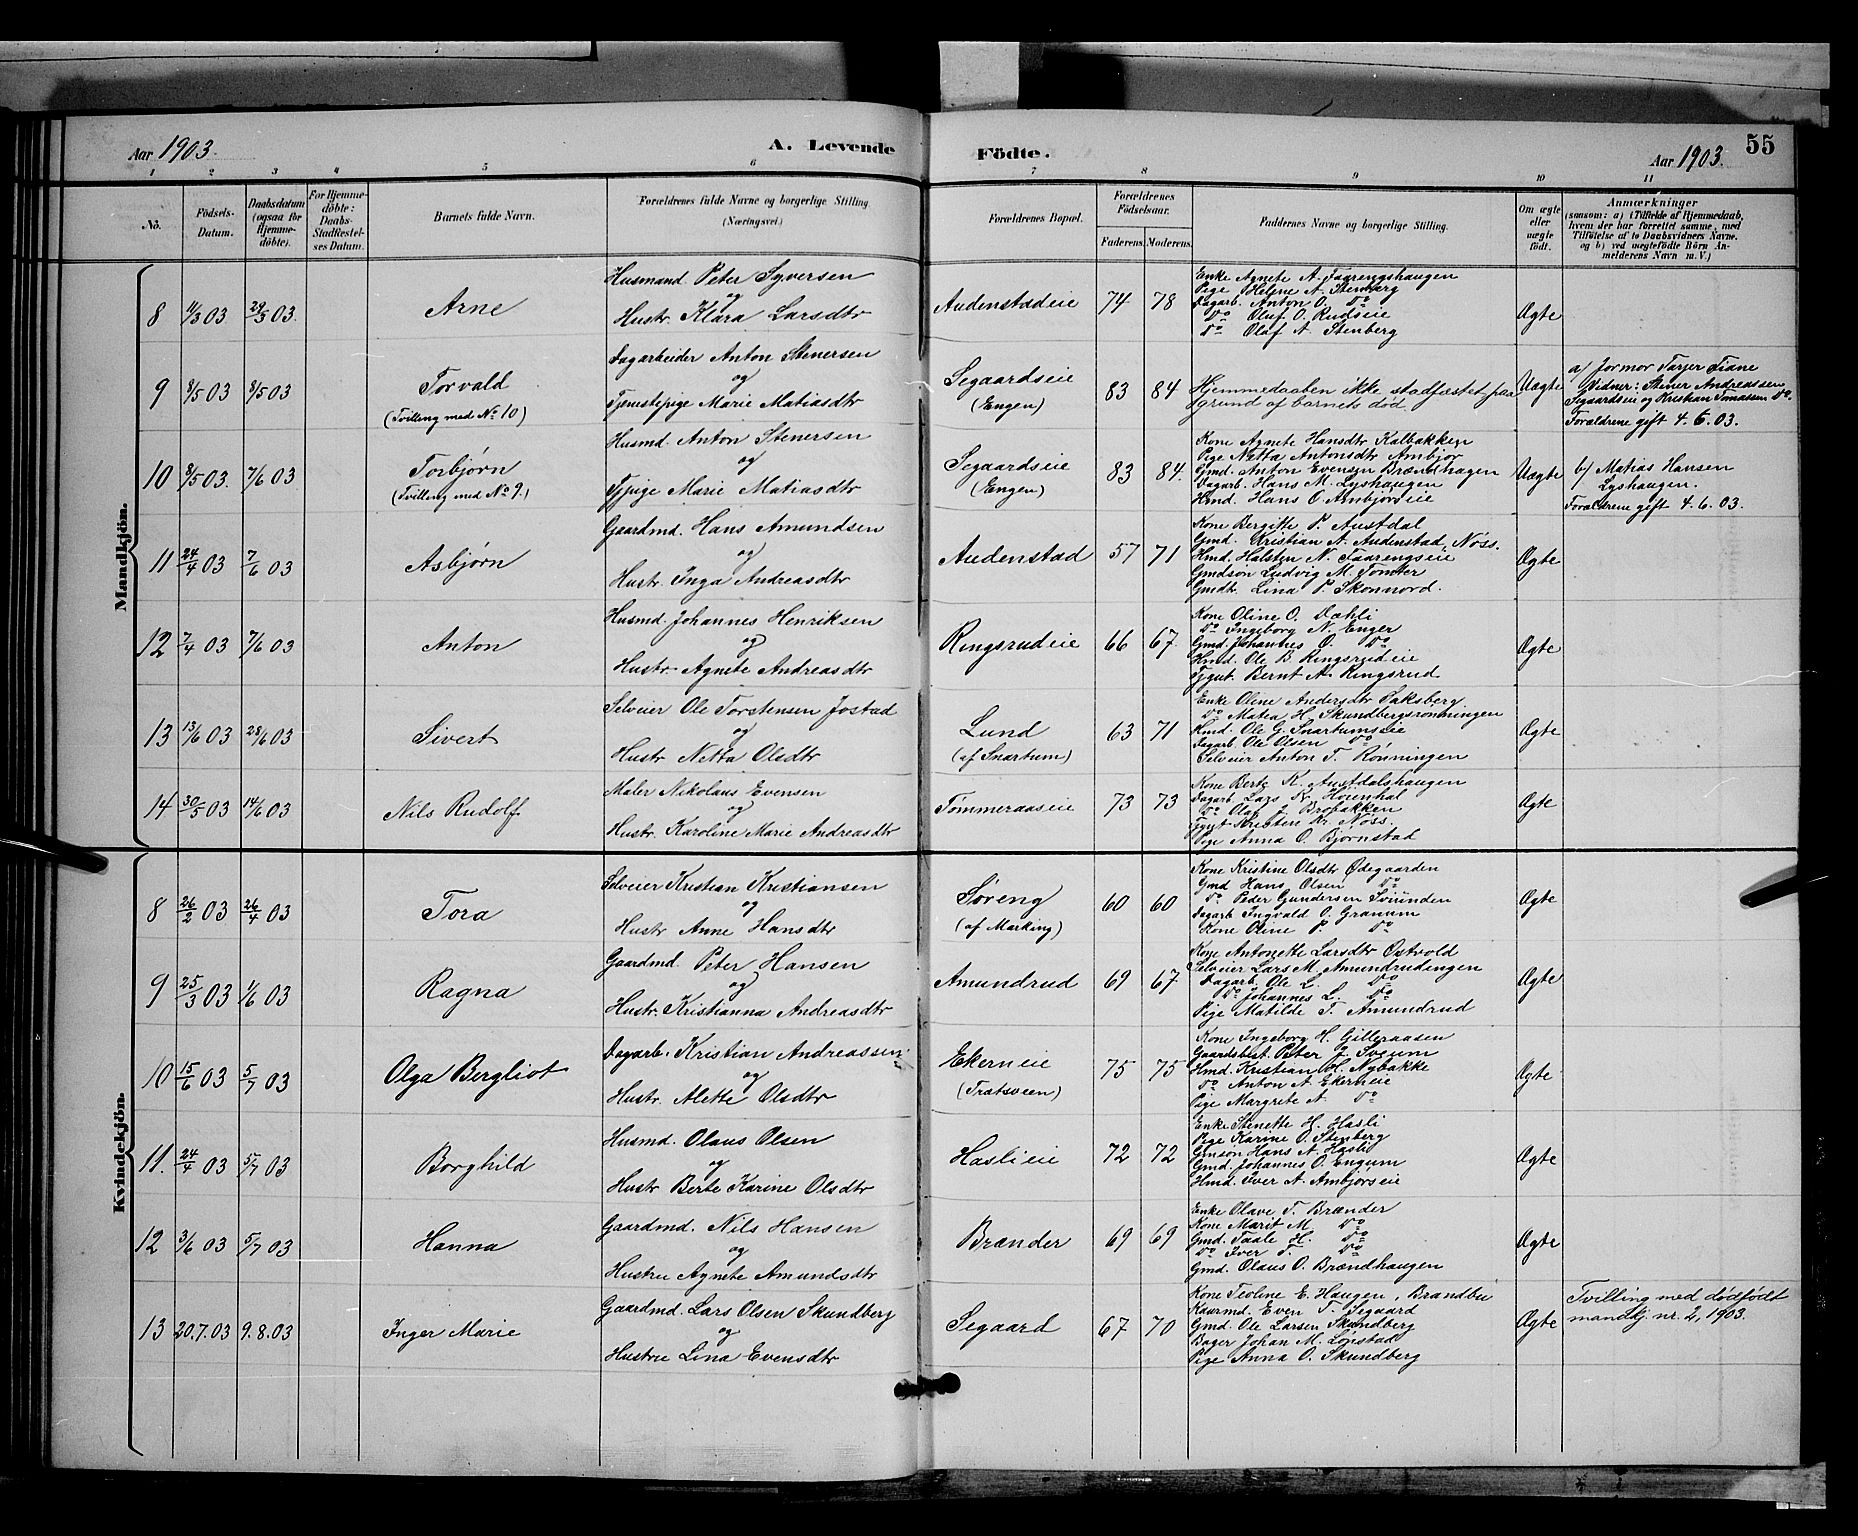 Aar 1903.
A. Levende
Födte.
Aar 1903.
55
1 2 3 4 5 6 7 8 9 10 11
Nö.
Födsels-Datum.
Daabsdatum (ogsaa for Hjemmedöbte).
For Hjemmedöbte: Daabs-Stadfæstelses Datum.
Barnets fulde Navn.
Forældrenes fulde Navne og borgerlige Stilling. (Næringsvei.)
Forældrenes Bopæl.
Forældrenes Födselsaar.
Faderens. Moderens.
Faddernes Navne og borgerlige Stilling.
Om ægte eller uægte födt.
Anmærkninger
(saasom: a) i Tilfælde af Hjemmedaab, hvem der har forrettet samme, med Tilföielse af to Daabsvidners Navne, og b) ved uægtefödte Börn Anmelderens Navn m. V.)
Mandkjön.
8 11/3 03 29/3 03. Arne
Husmand Peter Syversen
og
Hustr. Klara Larsdtr
Audenstadeie 74 78
Enke Agnete A. Faarengshaugen
Pige Helene A. Stenberg
Dagarb. Anton O. Do
Do Oluf O. Rudseie
Do Olaf A. Stenberg
Ægte
9 8/5 03 8/5 03 Torvald
(Tvilling med No 10)
Dagarbeider Anton Stenersen
og
Tjenestepige Marie Matiasdtr
Segaardseie
(Engen)
83 84
Hjemmedaaben ikke stadfæstet paa
grund af barnets død.
Uægte
a) Jormor Tarjer Tiane
Vidner: Stener Andreassen
Segaardseie og Kristian Tomassen Do.
Forældrene gift 4. 6. 03.
10 8/5 03. 7/6 03 Torbjørn
(Tvilling med No 9.)
Husmd. Anton Stenersen
og
Tjpige Marie Matiasdtr
Segaardseie
(Engen)
83 84.
Kone Agnete Hansdtr Kalbakken
Pige Netta Antonsdtr Ambjør
Gmd. Anton Evensen Brændhagen
Dagarb. Hans M. Lyshaugen
Hmd. Hans O. Ambjørseie
Uægte
b) Matias Hansen
Lyshaugen.
Forældrene gift 4. 6. 03.
11 24/4 03 7/6 03 Asbjørn
Gaardmd. Hans Amundsen
og
Hustr. Inga Andreasdtr
Audenstad 57 71
Kone Bergitte P. Austdal
Gmd. Kristian A. Audenstad, Nöss.
Hmd. Halsten N. Faarengseie
Gmdsøn Ludvig M. Tomter
Gmdtr. Lina P. Skonnord.
Ægte
12 7/4 03 7/6 03 Anton
Husmd. Johannes Henriksen
og
Hustr. Agnete Andreasdtr
Ringsrudeie 66 67
Kone Oline O. Dæhli
Do Ingeborg N. Enger
Gmd. Johannes O. Do
Hmd. Ole B. Ringsrudeie
Tjgut. Bernt A. Ringsrud
Ægte
13 13/6 03 28/6 03 Sivert
Selveier Ole Torstensen Jostad
og
Hustr Netta Olsdtr
Lund
(af Snartum)
63 71
Enke Oline Andersdtr Paksberg
Do Matea H. Skundbergsrønningen
Hmd. Ole G. Snartumseie
Dagarb. Ole Olsen Do
Selveier Anton T. Rønningen
Ægte
14 30/5 03 14/6 03 Nils Rudolf
Maler Nikolaus Evensen
og
Hustr. Karoline Marie Andreasdtr
Tømmeraaseie 73 73
Kone Berte K. Austdalshaugen
Dagarb. Lars Kr. Hoienhal
Do Olaf J. Brobakken
Tjgut Kristen Kr. Nöss.
Pige Anna O. Bjørnstad
Ægte
Kvindekjön.
8 26/2 03 26/4 03 Tora
Selveier Kristian Kristiansen
og
Hustr. Anne Hansdtr
Søreng
(af Marking)
60 60
Kone Kristine Olsdtr Ødegaarden
Gmd Hans Olsen Do
Do Peder Gundersen
Dagarb Ingvald O. Granum
Kone Oline P. Do
Ægte
9 25/3 03 1/6 03 Ragna
Gaardmd. Peter Hansen
og
Hustr. Kristianna Andreasdtr
Amundrud 69 67
Kone Antonette Larsdtr Ostvold
Selveier Lars M. Amundrudengen
Dagarb. Ole L. Do
Do Johannes L. Do
Pige Matilde T. Amundrud
Ægte
10 15/6 03 5/7 03 Olga Bergliot
Dagarb. Kristian Andreassen
og
Hustr. Alette Olsdtr
Ekerneie
(Tratsveen)
75 75
Kone Ingeborg H. Gilleraasen
Gaardsbest. Peter J. Sveum
Hmd. Kristian H. Nybakke
Do Anton A. Ekerneie
Pige Margrete A. Do
Ægte
11. 24/4 03 5/7 03 Borghild
Husmd. Olaus Olsen
og
Hustr. Berte Karine Olsdtr
Haslieie 72 72
Enke Stenette H. Hasli
Pige Karine O. Stenberg
Gmsøn Hans A. Hasli
Gmd. Johannes O. Engum
Hmd. Iver A. Ambjørseie
Ægte
12 3/6 03 5/7 03 Hanna
Gaardmd. Nils Hansen
og
Hustru Agnete Amundsdtr
Brænder 69 69
Enke Olave T. Brænder
Kone Marit M. Do
Gmd. Taale H. Do
Do Iver T. Do
Gmd. Olaus O. Brændhaugen
Ægte
13 20.7.03 9.8.03 Inger Marie
Gaardmd. Lars Olsen Skundberg
og
Hustru Lina Evensdtr
Segaard 67 70
Kone Teoline E. Haugen, Brandbu
Kaarmd. Even T. Segaard
Gmd. Ole Larsen Skundberg
Bager Johan M. Lönstad
Pige Anna O. Skundberg
Ægte
Tvilling med dødfødt
mandkj. nr. 2, 1903.